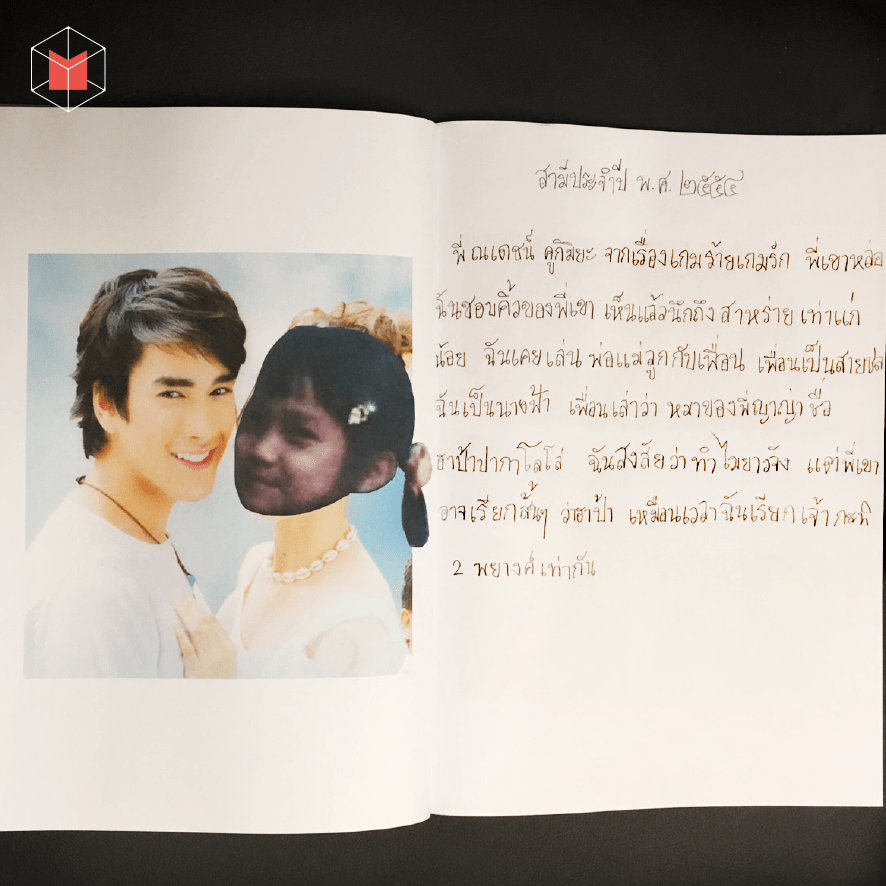 สามีประจำปี พ.ศ. ๒๕๕๔
พี่ ณเดชน์ คูกิมิยะ จากเรื่องเกมร้ายเกมรัก พี่เขาหล่อ
ฉันชอบคิ้วของพี่เขา เห็นแล้วนึกถึง สาหร่าย เท่าแก่
น้อย ฉันเคยเล่น พ่อแม่ลูกกับเพื่อน เพื่อนเป็นสายชล
ฉันเป็นนางฟ้า เพื่อนเล่าว่า หมาของพี่ญาญ่า ชื่อ
ฮาป้าปากาโลโล่ ฉันสงสัยว่าทำไมยาวจัง แต่พี่เขา
อาจเรียกสั้นๆ ว่าฮาป้า เหมือนเวลาฉันเรียกเจ้า กะทิ
2 พยางค์เท่ากัน